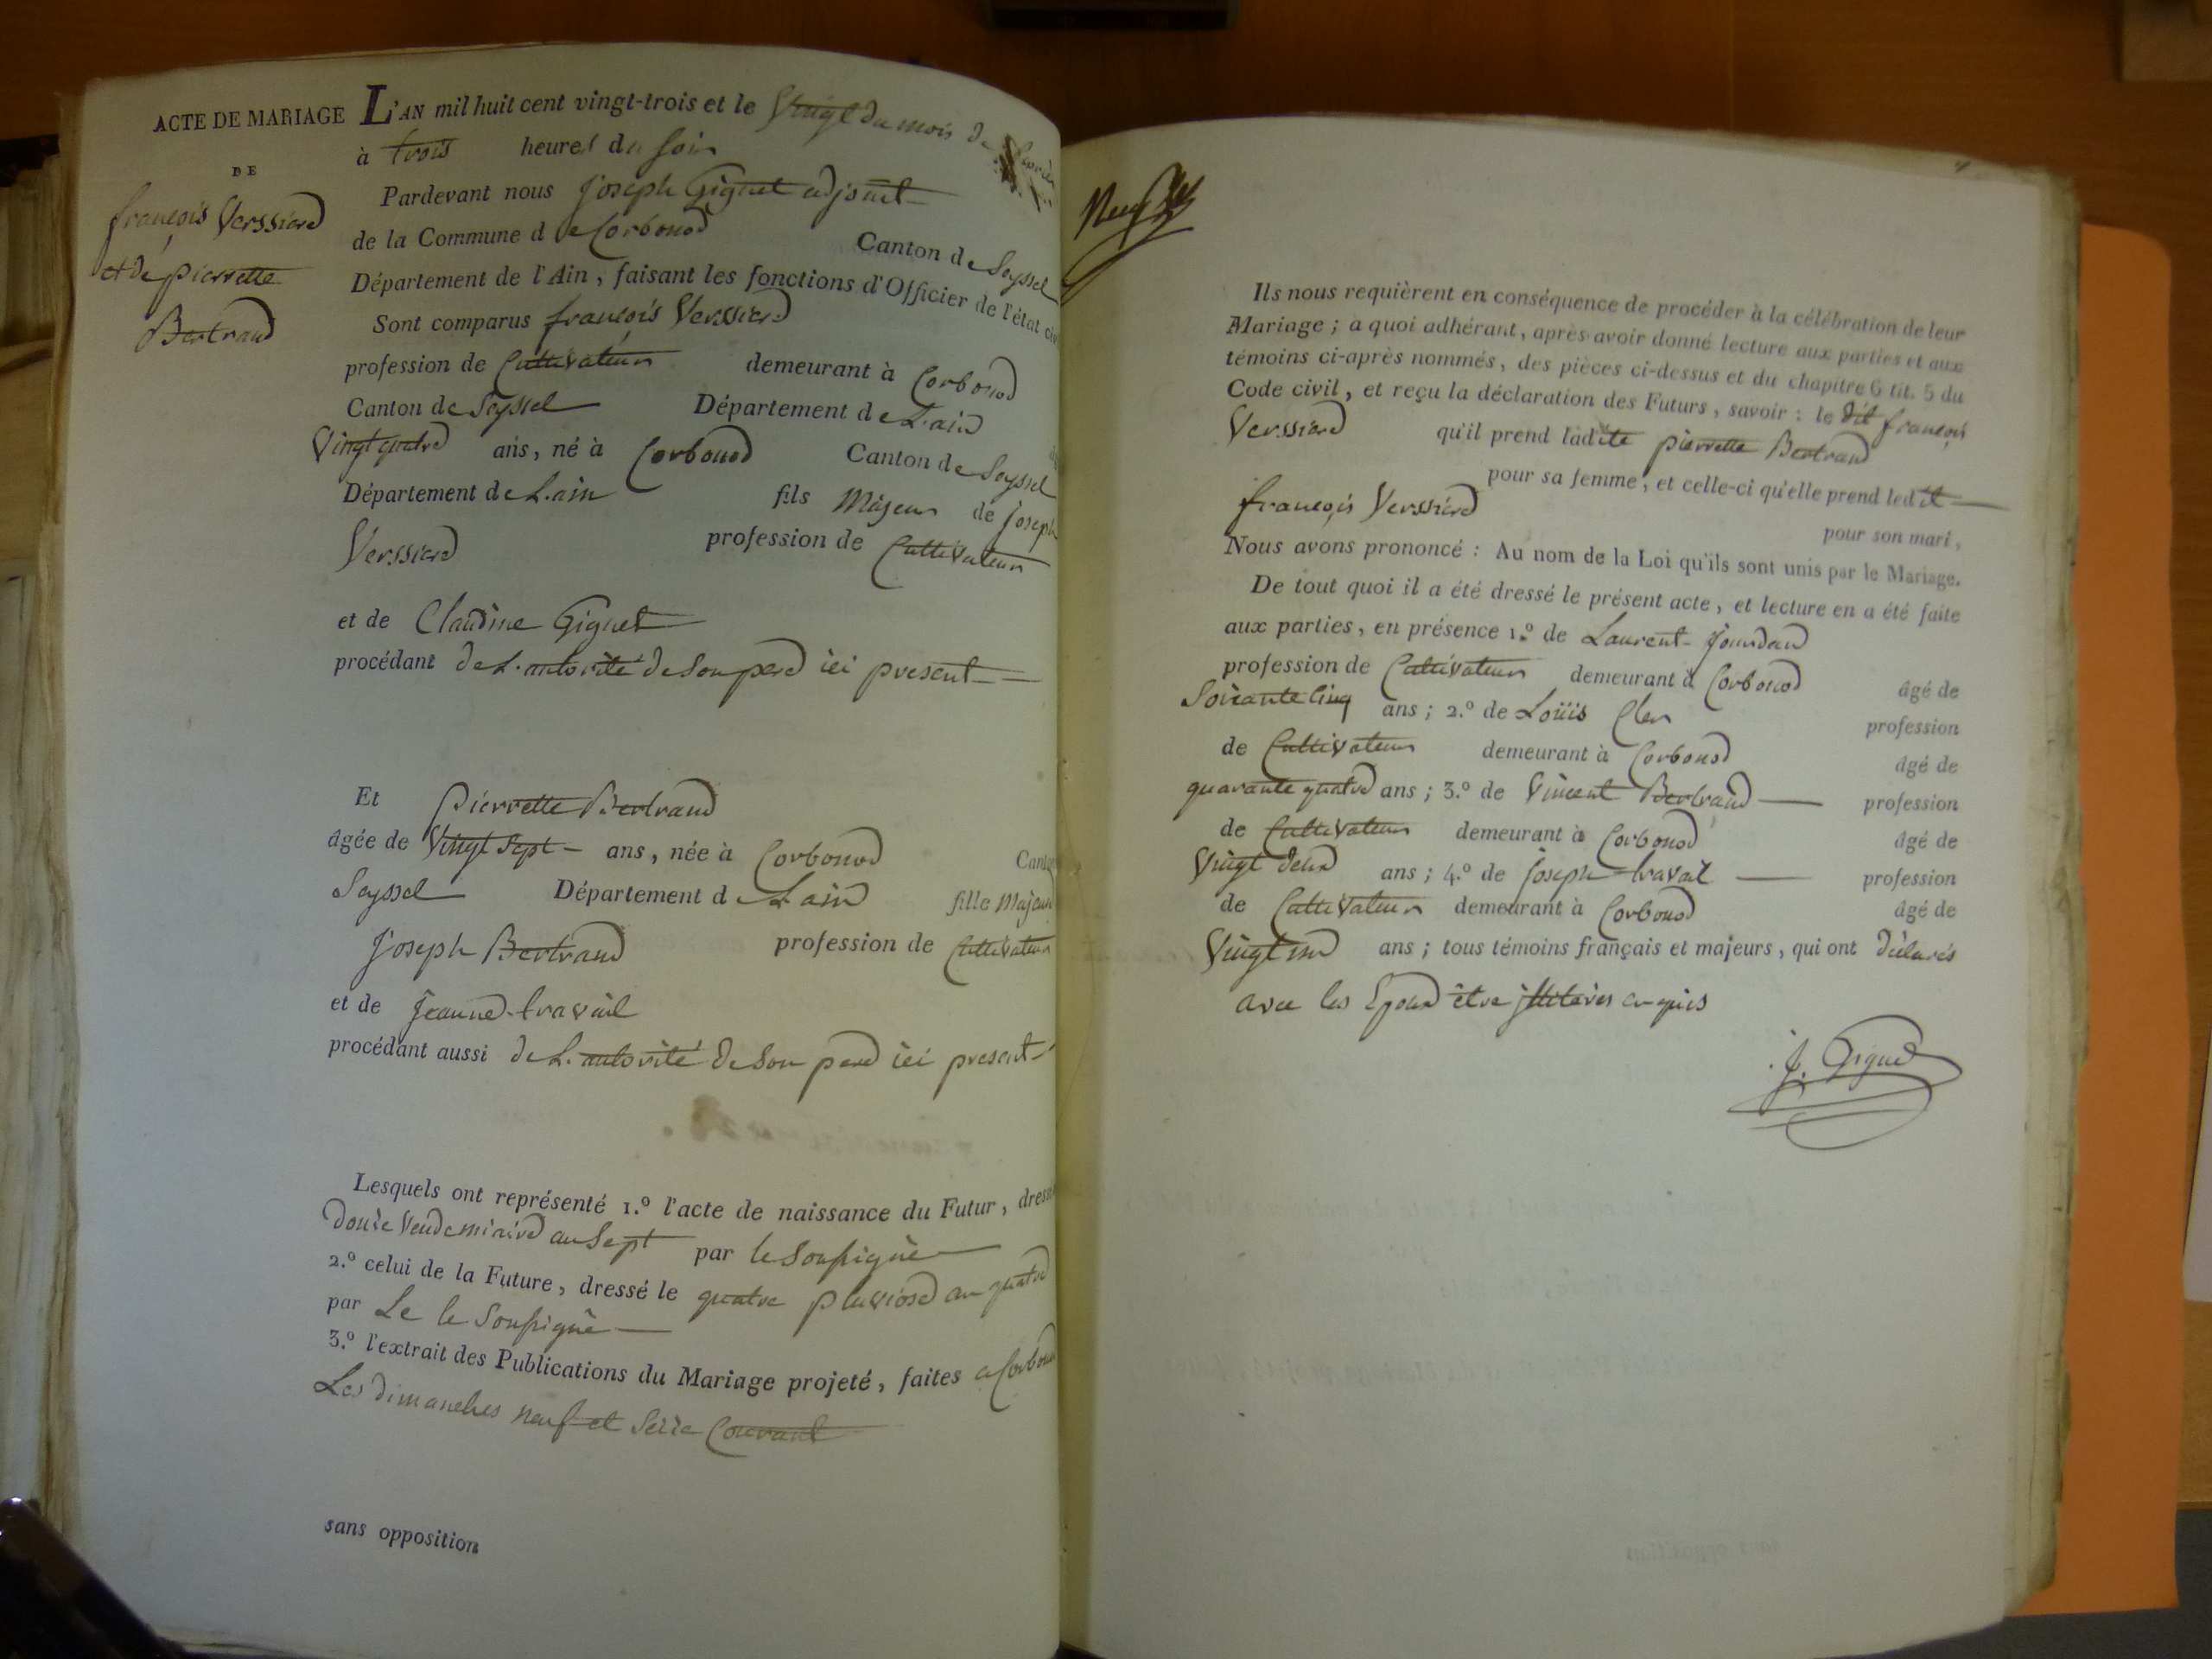 ACTE DE MARIAGE
DE
françois Verssiard
et de pierrette
Bertrand
L'AN mil huit cent vingt-trois et le Vingt du mois de fevrier
à trois heures du soir
Pardevant nous joseph Gignet adjoint
de la Commune de Corbonod Canton de Seyssel
Département de l'Ain, faisant les fonctions d'Officier de l'état civ
Sont comparus françois Verssiard
profession de Cultivateur demeurant à Corbonod
Canton de Seyssel Département de L'ain
Vingt quatre ans, né à Corbonod Canton de Seyssel
Département de L'ain fils Majeur de joseph
Verssiard profession de Cultivateur
et de Claudine Gignet
procédant de L'autorité de Son pere ici present
Et pierrette Bertrand
âgée de Vingt Sept ans, née à Corbonod Canton
Seyssel Département de L'ain fille Majeure
joseph Bertrand profession de Cultivateur
et de jeanne travail
procédant aussi de L'autorité de Son pere ici present
Lesquels ont représenté 1.º l'acte de naissance du Futur, dressé
douze Vendemiaire an Sept par le Soussigné
2.º celui de la Future, dressé le quatre pluviose an quatre
par Le le Soussigné
3.º l'extrait des Publications du Mariage projeté, faites a Corbonod
Les dimanches neuf et Seize Courant
sans opposition
Neuf
Ils nous requièrent en conséquence de procéder à la célébration de leur
Mariage; à quoi adhérant, après avoir donné lecture aux parties et aux
témoins ci-après nommés, des pièces ci-dessus et du chapitre 6 tit. 5 du
Code civil, et reçu la déclaration des Futurs, savoir: le dit françois
Verssiard qu'il prend ladite pierrette Bertrand
pour sa femme, et celle-ci qu'elle prend ledit
françois Verssiard pour son mari,
Nous avons prononcé: Au nom de la Loi qu'ils sont unis par le Mariage.
De tout quoi il a été dressé le présent acte, et lecture en a été faite
aux parties, en présence 1.º de Laurent Jourdan
profession de Cultivateur demeurant à Corbonod âgé de
Soixante Cinq ans; 2.º de Loüis Cler profession
de Cultivateur demeurant à Corbonod âgé de
quarante quatre ans; 3.º de Vincent Bertrand profession
de Cultivateur demeurant à Corbonod âgé de
Vingt deux ans; 4.º de joseph travail profession
de Cultivateur demeurant à Corbonod âgé de
Vingt un ans; tous témoins français et majeurs, qui ont déclarés
avec les Epoux être illiteres enquis
J. Gignet